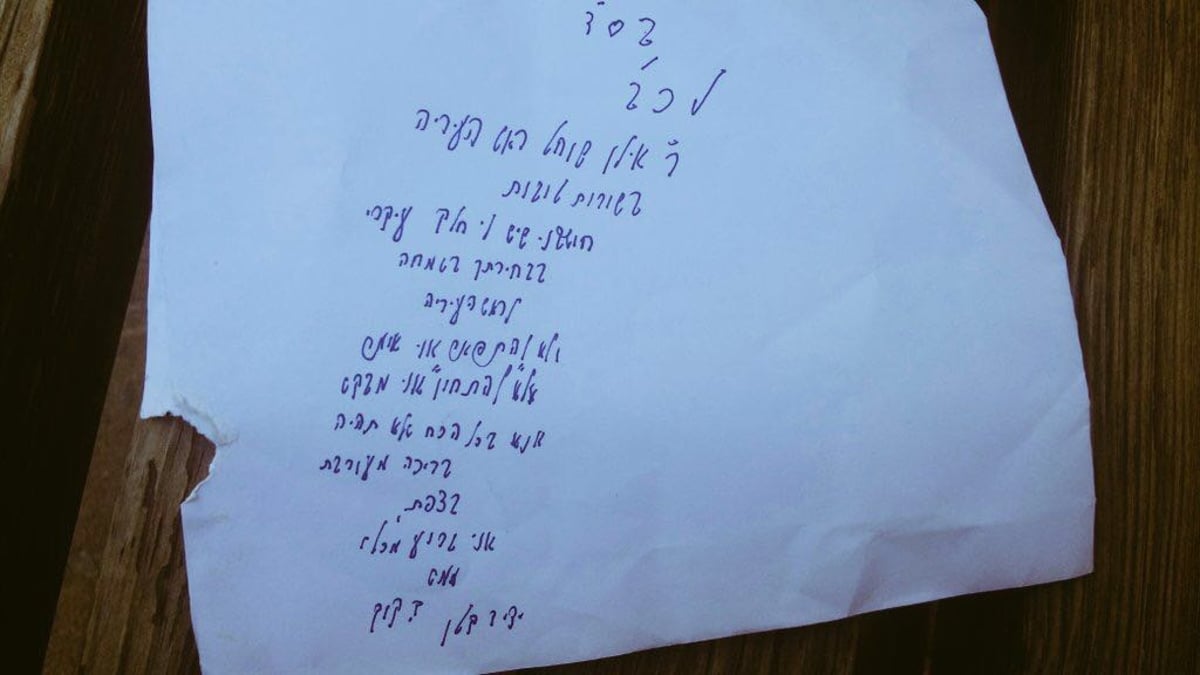 בס"ד
לכב'
ר' אילן שוחט ראש העיריה
בשורות טובות
חושבני שיש לי חלק עיקרי
בבחירתך בשמחה
לראש העיריה
ולא להתפאר אני
שלא "להתחנן" אני מבקש
אנא בכל הכח שלא תהיה
בריכה מעורבת
בצפת
אני
ממש
ידיד